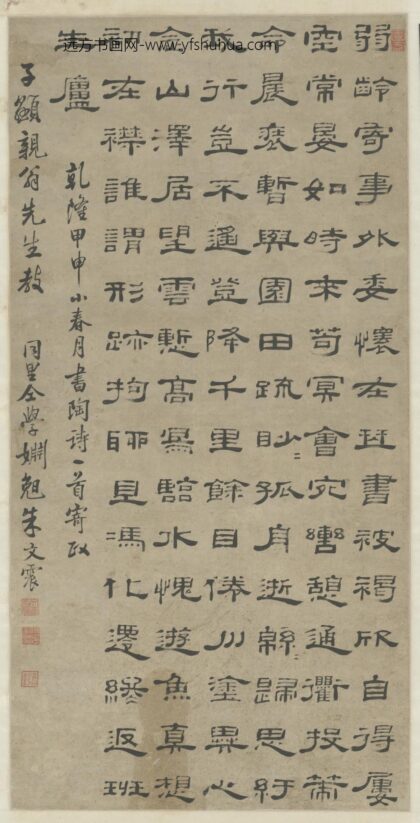 远方书画网-www.yfshuhua.com
弱齡寄事外委懷在琴書被褐欣自得屢
空常晏如時來苟冥會宛轡憩通衢投策
命晨裝暫與園田疏眇〻孤舟逝緜〻歸思紆
我行豈不遥登降千里餘目倦川塗異心
念山澤居望雲慙高鳥臨水愧遊魚真想
初在襟誰謂形跡拘聊且馮化遷終返班
生廬
乾隆甲申小春月書陶詩一首寄政
子顥親翁先生教
同里仝學姻朱文震